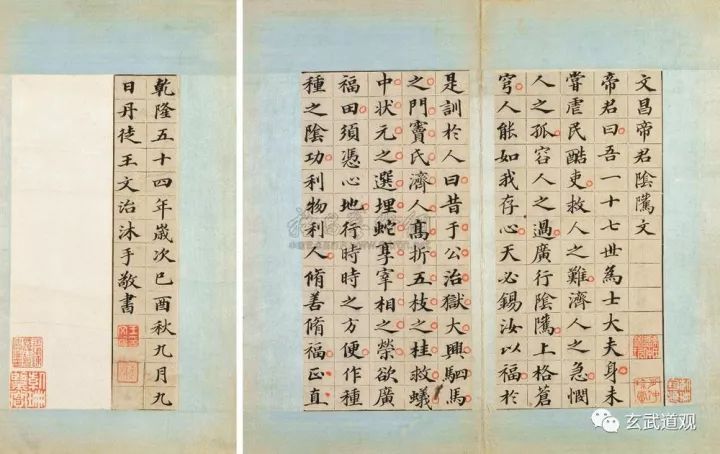 文昌帝君陰騭文
帝君曰吾一十七世為士大夫身未
嘗虐民酷吏救人之難濟人之急憫
人之孤容人之過廣行陰騭上格蒼
穹人能如我存心天必錫汝以福於
是訓於人曰昔于公治獄大興駟馬
之門竇氏濟人髙折五枝之桂救蟻
中狀元之選埋蛇享宰相之榮欲廣
福田須憑心地行時時之方便作種
種之陰功利物利人脩善脩福正直
乾隆五十四年歲次己酉秋九月九
日丹徒王文治沐手敬書
玄武道观